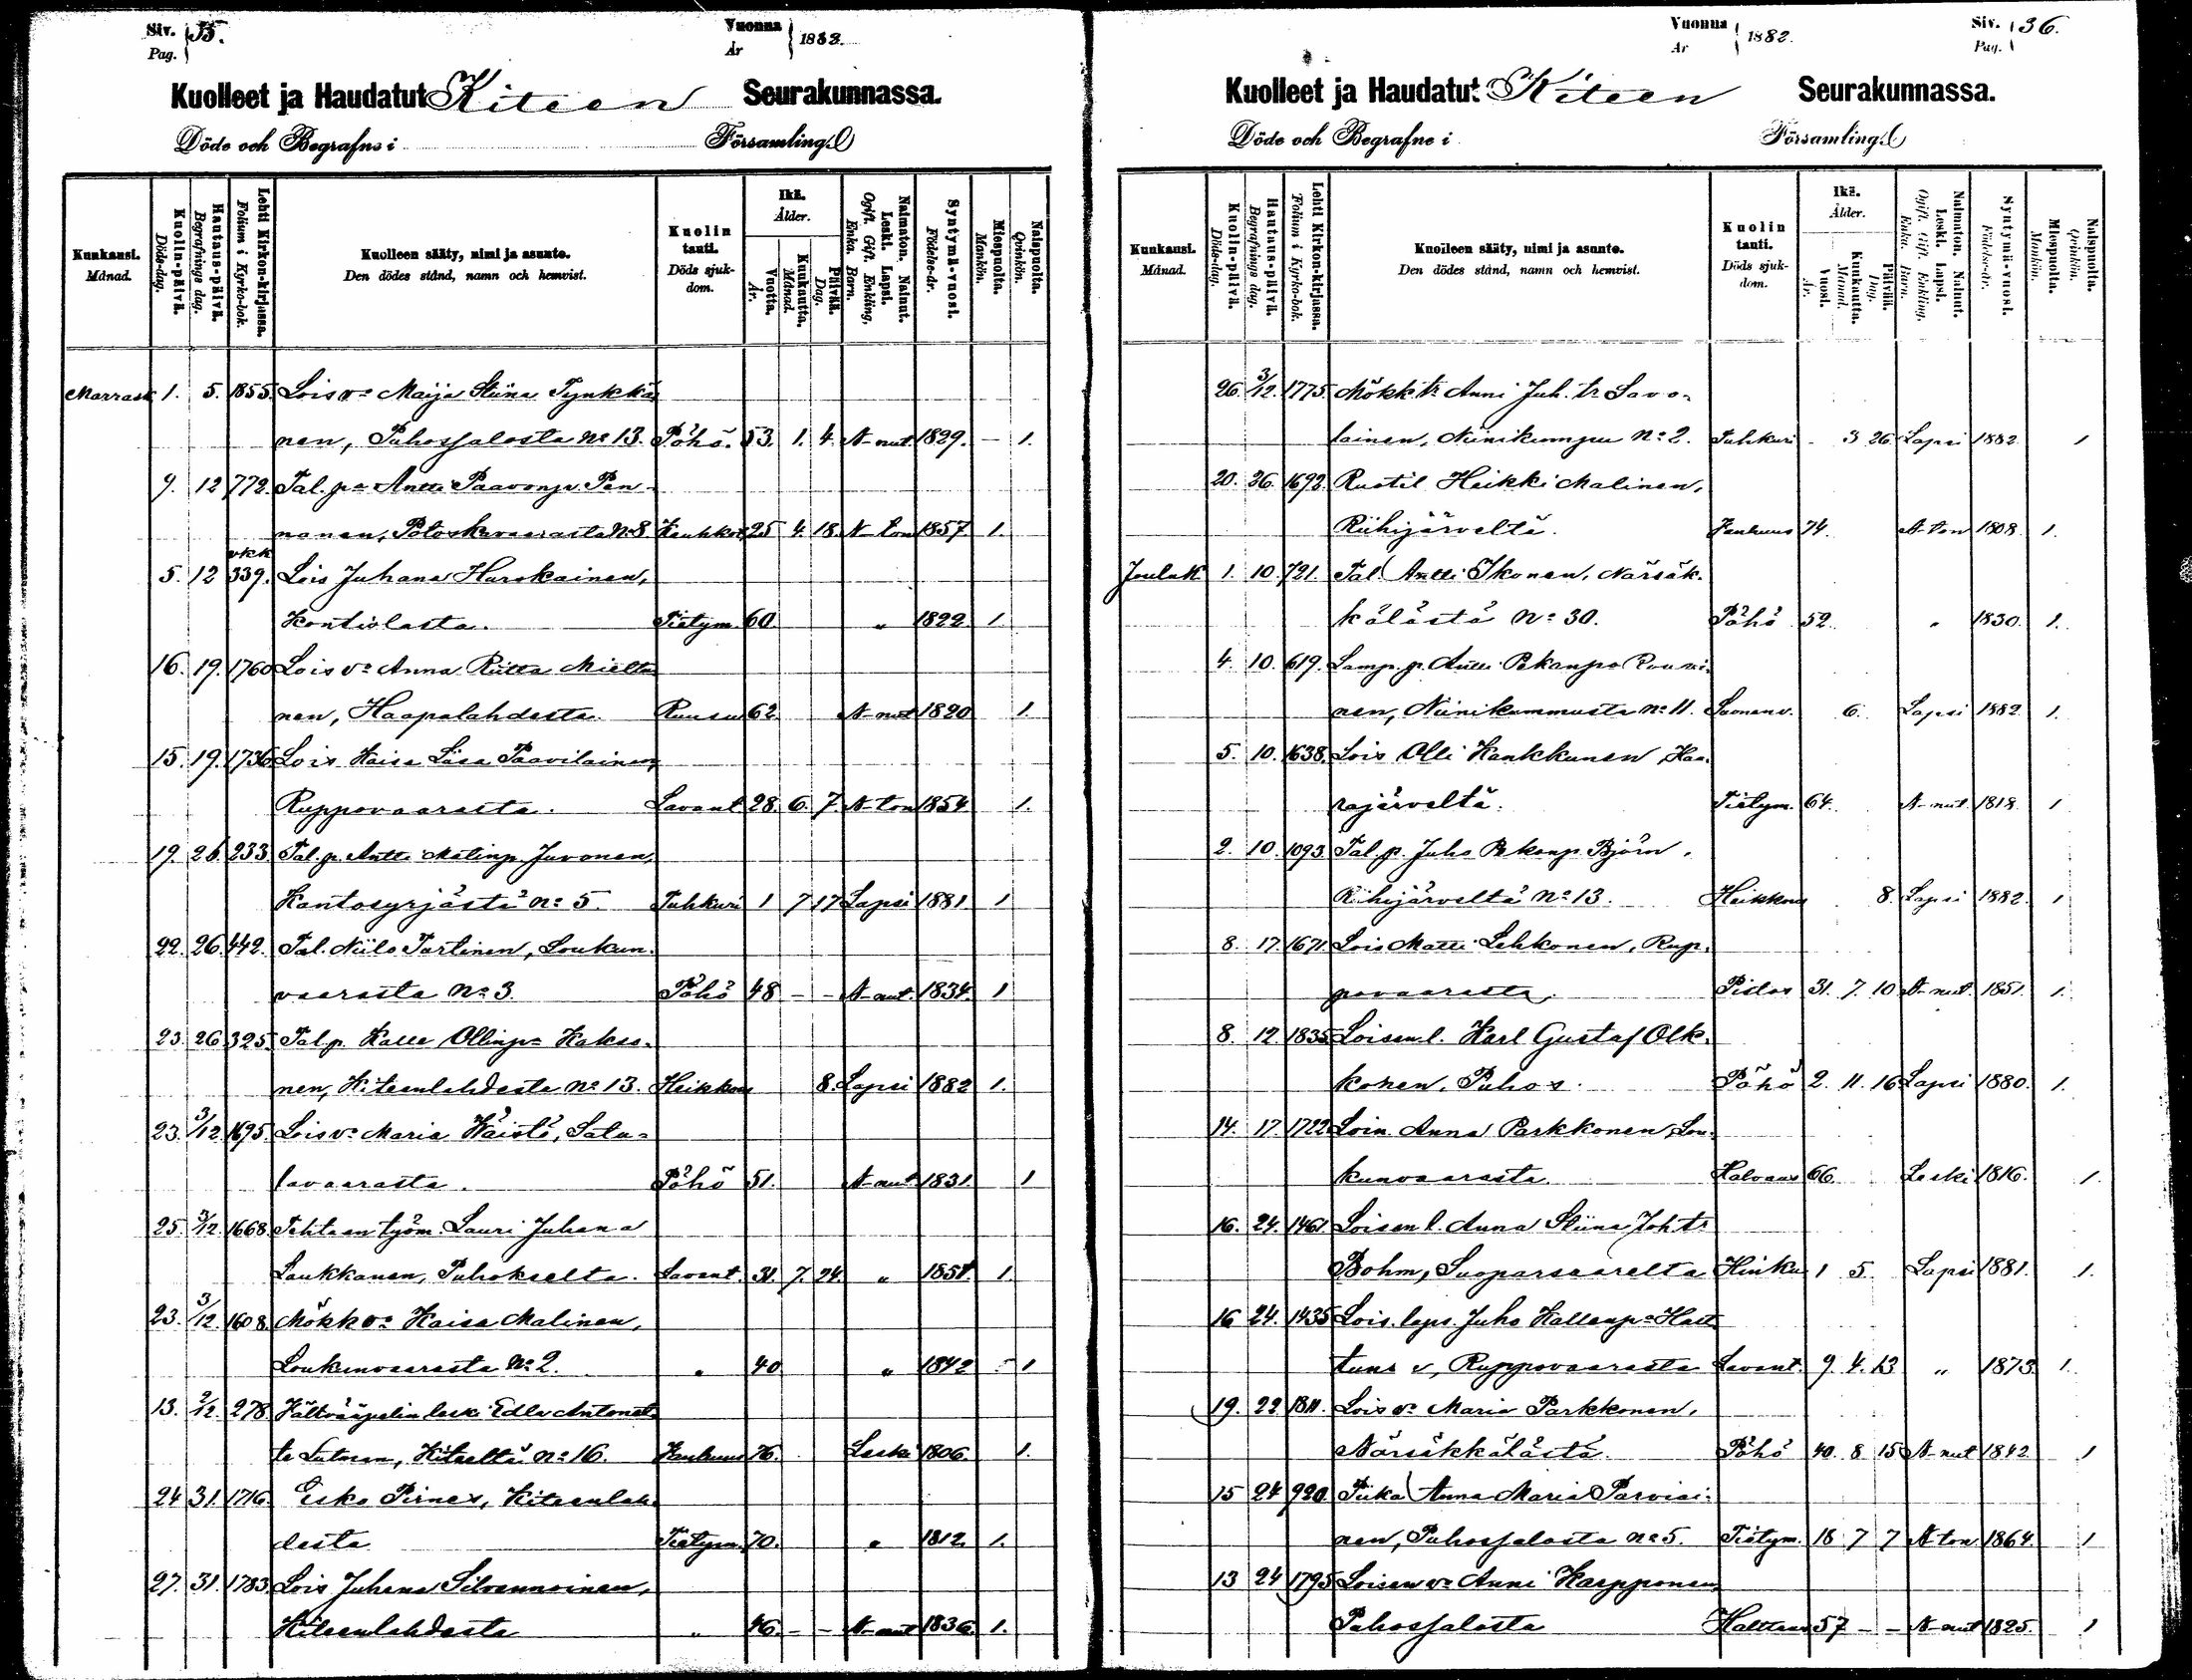 Siv. Pag. 35.
Vuonna År 1882.
Kuolleet ja Haudatut Kiteen Seurakunnassa.
Döde och Begrafne i Församling
Kuukausi. Månad.
Kuolin-päivä. Döds-dag.
Hautaus-päivä. Begrafnings dag.
Lehti Kirkon-kirjassa. Folium i Kyrko-bok.
Kuolleen sääty, nimi ja asunto. Den dödes stånd, namn och hemvist.
Kuolin tauti. Döds sjuk-dom.
Ikä. Ålder.
Vuotta. År.
Kuukautta. Månad.
Päivää. Dag.
Naimaton. Nainut. Leski. Lapsi. Ogift. Gift. Enkling, Enka. Barn.
Syntymä-vuosi. Födelse-år.
Miespuolta. Mankön.
Naispuolta. Qvinkön.
Marrask 1. 5. 1855. Lois v:o Maija Stiina Tynkkä-
nen, Puhosjalosta No 13. Pöhö. 53. 1. 4. N-nut 1829. - 1.
9. 12 772. Tal. p:a Antti Paavonp. Pen-
nanen, Potoskavaarasta No 8. Keuhkot. 25 4. 18. N-ton 1857 1.
5. 12 vkk 339. Lois Juhana Hurskainen,
Kontiolasta. Tietym. 60. " 1822 1.
16. 19. 1760 Lois v:o Anna Riitta Mielto-
nen, Haapalahdesta. Ruusu 62. N-nut 1820 1.
15. 19. 1736 Lois Kaisa Liisa Paavilainen,
Ruppovaarasta. Lavant. 28. 6. 7. N-ton 1854. 1.
19. 26. 233. Tal. p. Antti Matinp. Juvonen,
Kantosyrjästä No 5. Tuhkuri 1 7 17 Lapsi 1881. 1
22. 26. 442. Tal. Niilo Turtinen, Loukun-
vaarasta No 3. Pöhö 48 - - N-nut. 1834. 1
23. 26 325. Tal p. Kalle Ollinp:a Hakso-
nen, Kiteenlahdesta No 13. Heikkous 8. Lapsi 1882 1.
23. 3/12. 1695. Lois v:o Maria Väistö, Satu-
lavaarasta. Pöhö 51. N-nut. 1831. 1
25. 3/12. 1668. Tehtaan työm. Lauri Juhana
Laukkanen, Puhokselta. Lavant. 31. 7. 24. " 1851. 1.
23. 3/12. 1608. Mökk v:o Kaisa Malinen,
Loukunvaarasta No 2. " 40 " 1842 - 1
13. 2/12. 278. Vältvääpelin leski Edla Antonet-
te Lutman, Kiteeltä No 16. Vanhuus 76. Leski 1806. 1.
24 31. 1716. Esko Pirnes, Kiteenlah-
desta Tietym. 70. " 1812. 1.
27. 31. 1783. Lois Juhana Silvennoinen,
Kiteenlahdesta " 46. - - N-nut 1836. 1.
Vuonna År 1882.
Siv. Pag. 36.
Kuolleet ja Haudatut Kiteen Seurakunnassa.
Döde och Begrafne i Församling
Kuukausi. Månad.
Kuolin-päivä. Döds-dag.
Hautaus-päivä. Begrafnings dag.
Lehti Kirkon-kirjassa. Folium i Kyrko-bok.
Kuolleen sääty, nimi ja asunto. Den dödes stånd, namn och hemvist.
Kuolin tauti. Döds sjuk-dom.
Ikä. Ålder.
Vuosi. År.
Kuukautta. Månad.
Päivää. Dag.
Naimaton. Nainut. Leski. Lapsi. Ogift. Gift. Enkling. Enka. Barn.
Syntymä-vuosi. Födelse-år.
Miespuolta. Mankön.
Naispuolta. Qvinkön.
26. 3/12. 1775. Mökk. tr. Anni Juh. tr Savo-
lainen, Niinikumpu No 2. Tuhkuri - 3 26 Lapsi 1882. 1
20. 26. 1692. Ruotil Heikki Malinen,
Riihijärveltä. Vanhuus 74. N-ton 1808. 1.
Jouluk 1. 10. 721. Tal. Antti Ikonen, Närsäk-
kälästä No 30. Pöhö 52. " 1830. 1.
4. 10. 619. Lamp. p. Antti Pekanpo
nen, Niinikummusta No 11. 6. Lapsi 1882. 1.
5. 10. 1638. Lois Olli Kankkunen, Haa-
rajärveltä. Tietym. 64. N-nut. 1818. 1
2. 10. 1093. Tal p. Juho Pekanp. Björn,
Riihijärveltä No 13. Heikkous 8. Lapsi 1882. 1
8. 17. 1671. Lois Matti Lehkonen, Rup-
povaarasta. Pistos 31. 7. 10 N-nut. 1851. 1.
8. 12. 1835. Loisen l. Karl Gustaf Olk-
konen, Puhos. Pöhö 2. 11. 16 Lapsi 1880. 1.
14. 17. 1722 Loin. Anna Parkkonen, Lou-
kunvaarasta. Halvaus 66. Leski 1816. 1.
16. 24. 1461 Loisen l. Anna Stiina Joh. tr
Bohm, Suoparsaarelta Hinku 1 5. Lapsi 1881. 1.
16 24. 1435 Lois. laps. Juho Kallenp:a Hart-
tunen, Ruppovaarasta Lavant. 9. 4. 13 " 1873. 1.
19. 22. 1811. Lois v:o Maria Parkkonen,
Närsäkkälästä. Pöhö 40. 8. 15 N-nut 1842. 1
15 24 920 Piika Anna Maria Parviai-
nen, Puhosjalosta No 5. Tietym. 18 7 7 N-ton 1864. 1
13 24 1795 Loisen v:o Anni Karpponen,
Puhosjalosta Halttaus 57 - - N-nut 1825. 1